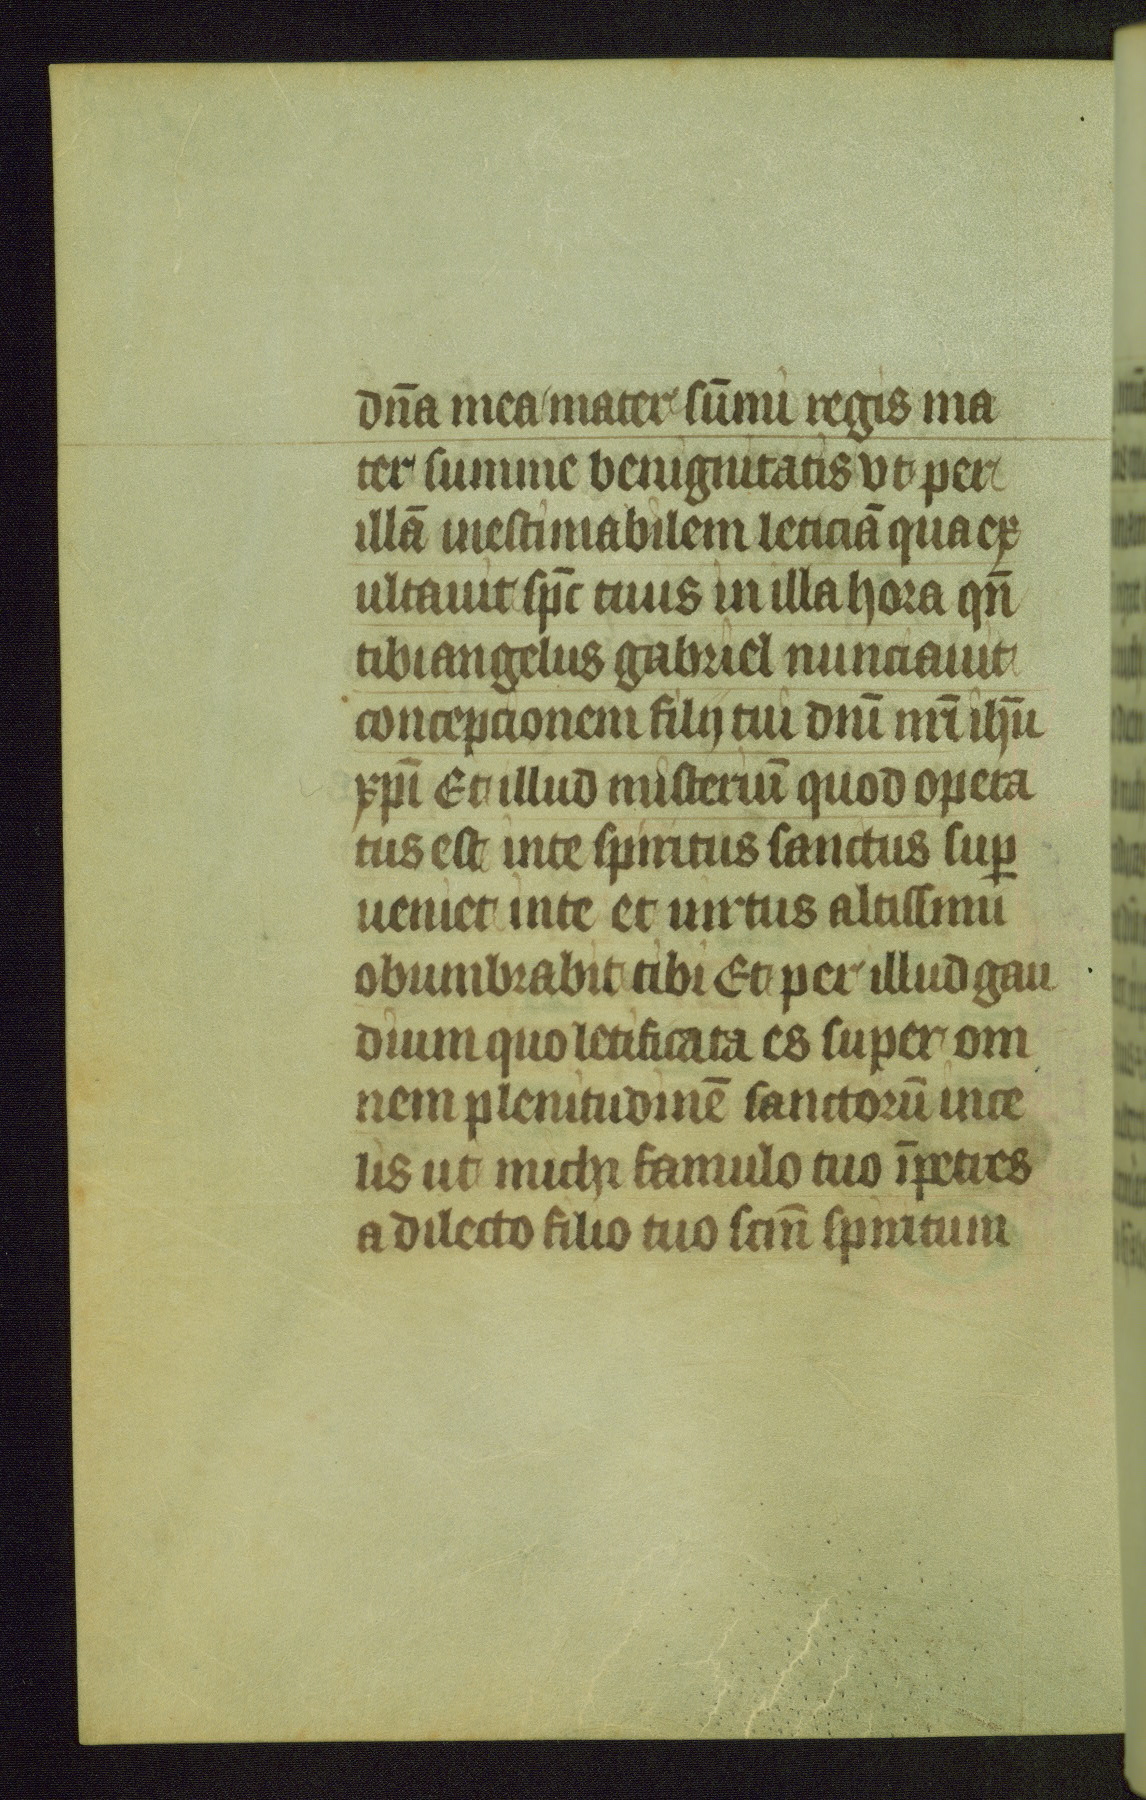 dn̄a mea mater sūmi regis ma
ter summe benignitatis vt per
illā inestimabilem leticiā qua ex
ultauit sp̄c tuus in illa hora qn̄
tibi angelus gabriel nunciauit
concepcionem filij tui dn̄i nr̄i ih̄u
xp̄i Et illud misteriū quod opera
tus est inte spiritus sanctus suꝑ
ueniet inte et uirtus altissimi
obumbrabit tibi Et per illud gau
dium quo letificata es super om
nem plenitudinē sanctorū in ce
lis ut michi famulo tuo īpetres
a dilecto filio tuo scm̄ spiritum